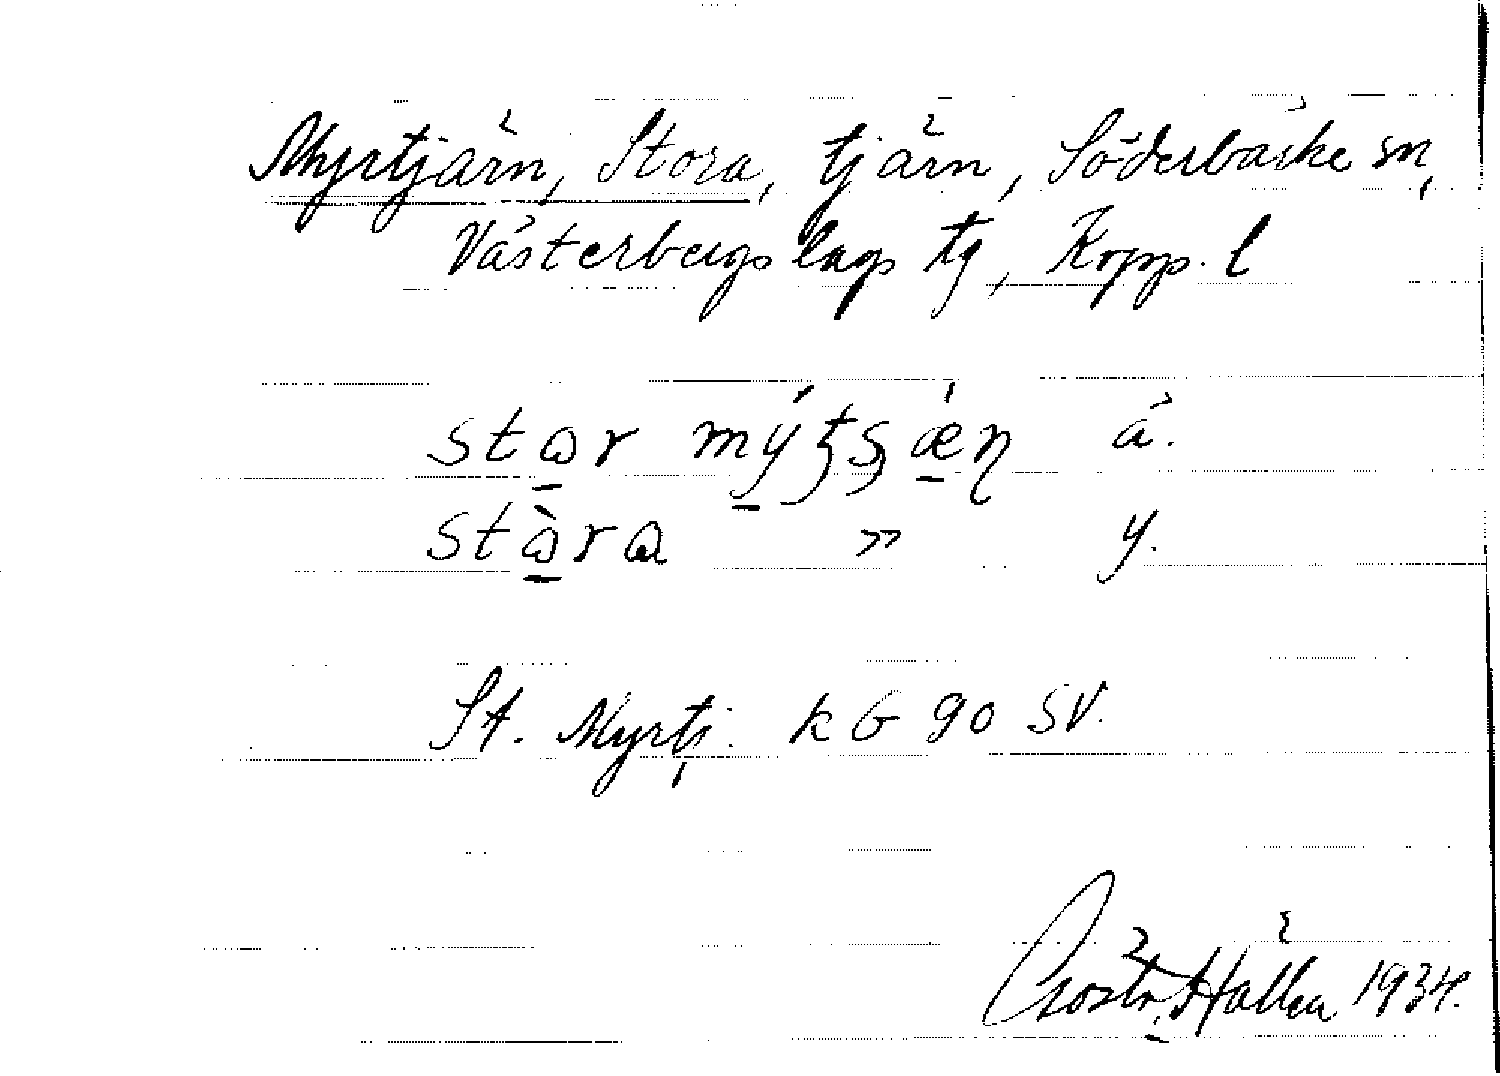 Myrtjärn, Stora, tjärn, Söderbärke sn,
Västerbergslags tg, Kopp. l
star mýʈʂæ̀ɳ ä.
stàra » y.
St. Myrtj. k G 90 SV.
Gösta Hallén 1934.